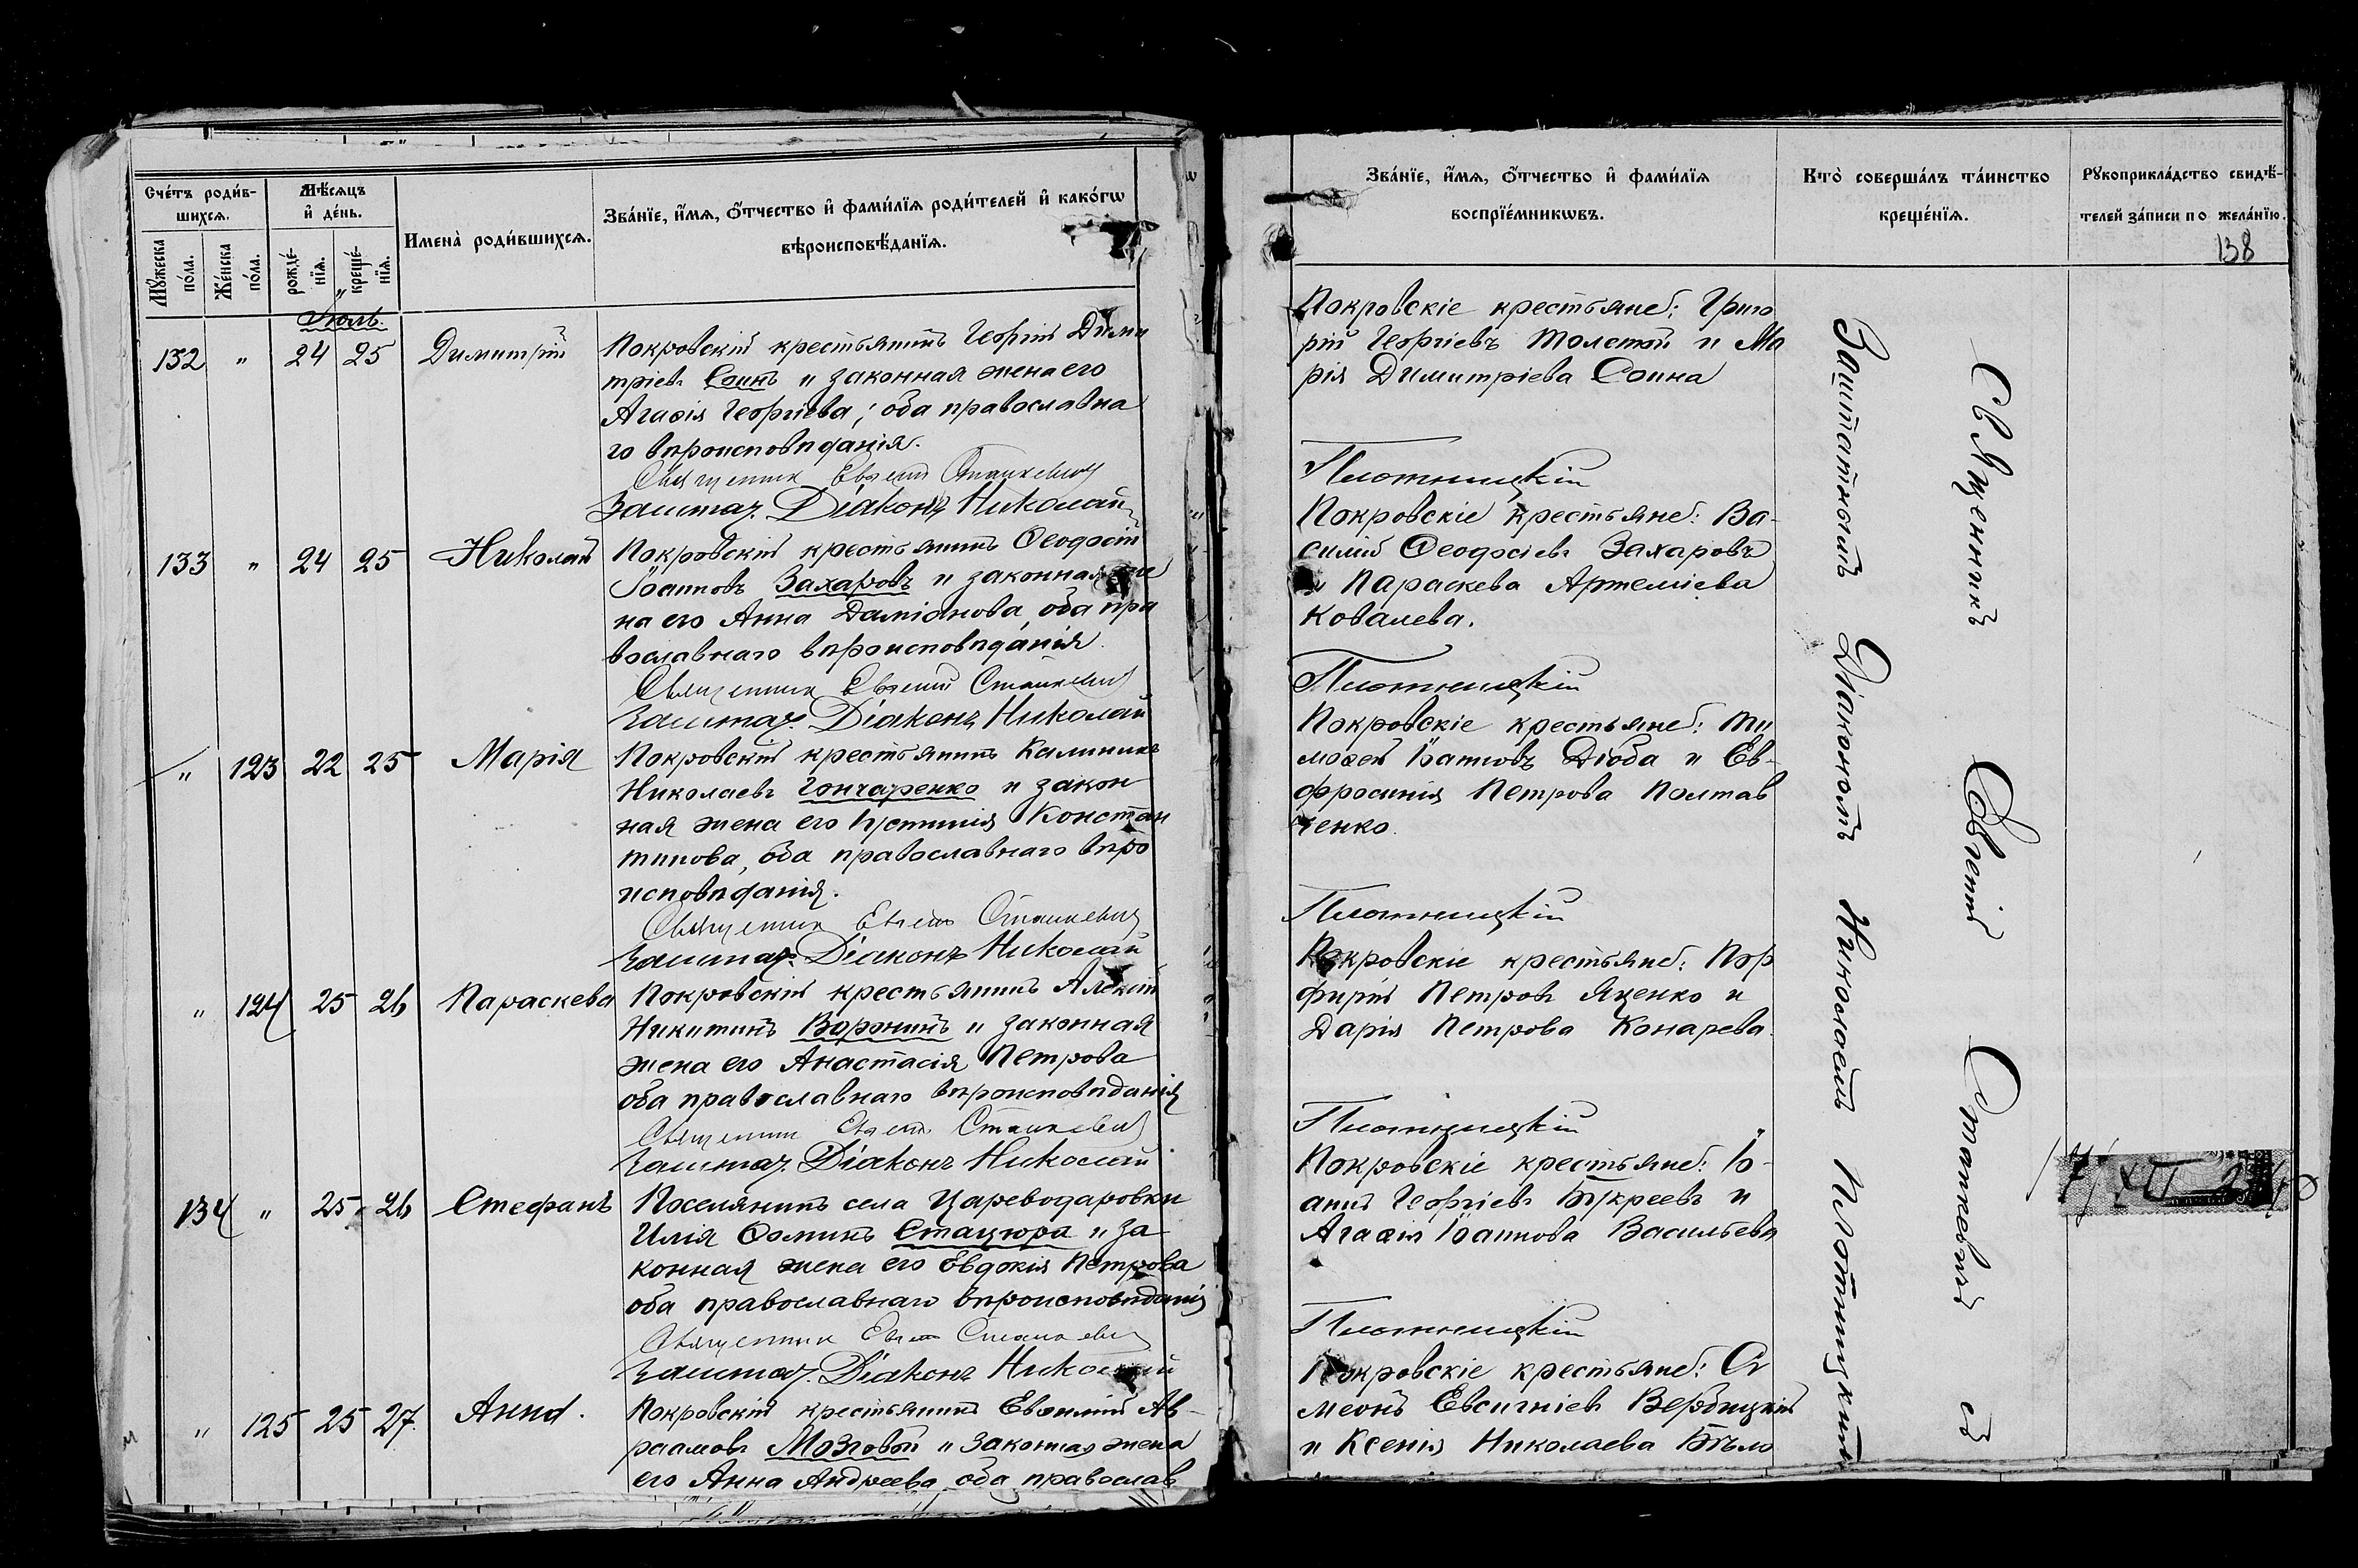 Счетъ родив-
шихся.
Мѣсяцъ
и день.
Мужеска
пола.
Женска
пола.
рожде-
нія.
креще-
нія.
Имена родившихся.
Званіе, имя, отчество и фамилія родителей и какогѡ
вѣроисповѣданія.
Июль.
132 " 24 25 Димитрій
Покровскій крестьянинъ Георгій Дими
тріевъ Соинъ и законная жена его
Агафія Георгіева; оба православна
го вѣроисповѣданія.
Священник Евгеній Станкевич
Заштат. Діаконъ Николай
133 " 24 25 Николай
Покровскій крестьянинъ Ѳеодосій
Іоанновъ Захаровъ и законная же
на его Анна Даміанова, оба пра
вославнаго вѣроисповѣданія.
Священник Евгеній Станкевич
Заштат. Діаконъ Николай
" 123 22 25 Марія
Покровскій крестьянинъ Калинникъ
Николаевъ Гончаренко и закон
ная жена его Іустинія Констан
тинова, оба православнаго вѣро
исповѣданія.
Священник Евгеній Станкевич
Заштат. Діаконъ Николай
" 124 25 26 Параскева
Покровскій крестьянинъ Алексій
Никитинъ Воронинъ и законная
жена его Анастасія Петрова
оба православнаго вѣроисповѣданія
Священник Евгеній Станкевич
Заштат. Діаконъ Николай
134 " 25 26 Стефанъ
Поселянинъ села Цареводаровки
Илія Ѳоминъ Стацюра и за
конная жена его Евдокія Петрова
оба православнаго вѣроисповѣданія
Священник Евгеній Станкевич
Заштат. Діаконъ Николай
" 125 25 27 Анна.
Покровскій крестьянинъ Евѳимій Ав-
раамовъ Мозговой и законная жена
его Анна Андреева оба православ
Званіе, имя, отчество и фамилія
воспріемникѡвъ.
Кто совершалъ таинство
крещенія.
Рукоприкладство свидѣ-
телей записи по желанію.
138
Покровскіе крестьяне: Григо
рій Георгіевъ Толстой и Ма
рія Димитріева Соина
Плотницкій
Покровскіе крестьяне: Ва-
силій Ѳеодосіевъ Захаровъ
и Параскева Артеміева
Ковалева.
Плотницкій
Покровскіе крестьяне: Ти
моѳей Іоанновъ Дзюба и Ев-
фросинія Петрова Полтав
ченко.
Плотницкій
Покровскіе крестьяне: Пор
фирій Петровъ Яценко и
Дарія Петрова Конарева.
Плотницкій
Покровскіе крестьяне: Іо-
аннъ Георгіевъ Букреевъ и
Агафія Іоаннова Васильева
Плотницкій
Покровскіе крестьяне: Си
меонъ Евсигніевъ Вербицкій
и Ксенія Николаева Бѣло
Священникъ Евгеній Станкевичъ съ
Заштатнымъ Діакономъ Николаемъ Плотницкимъ